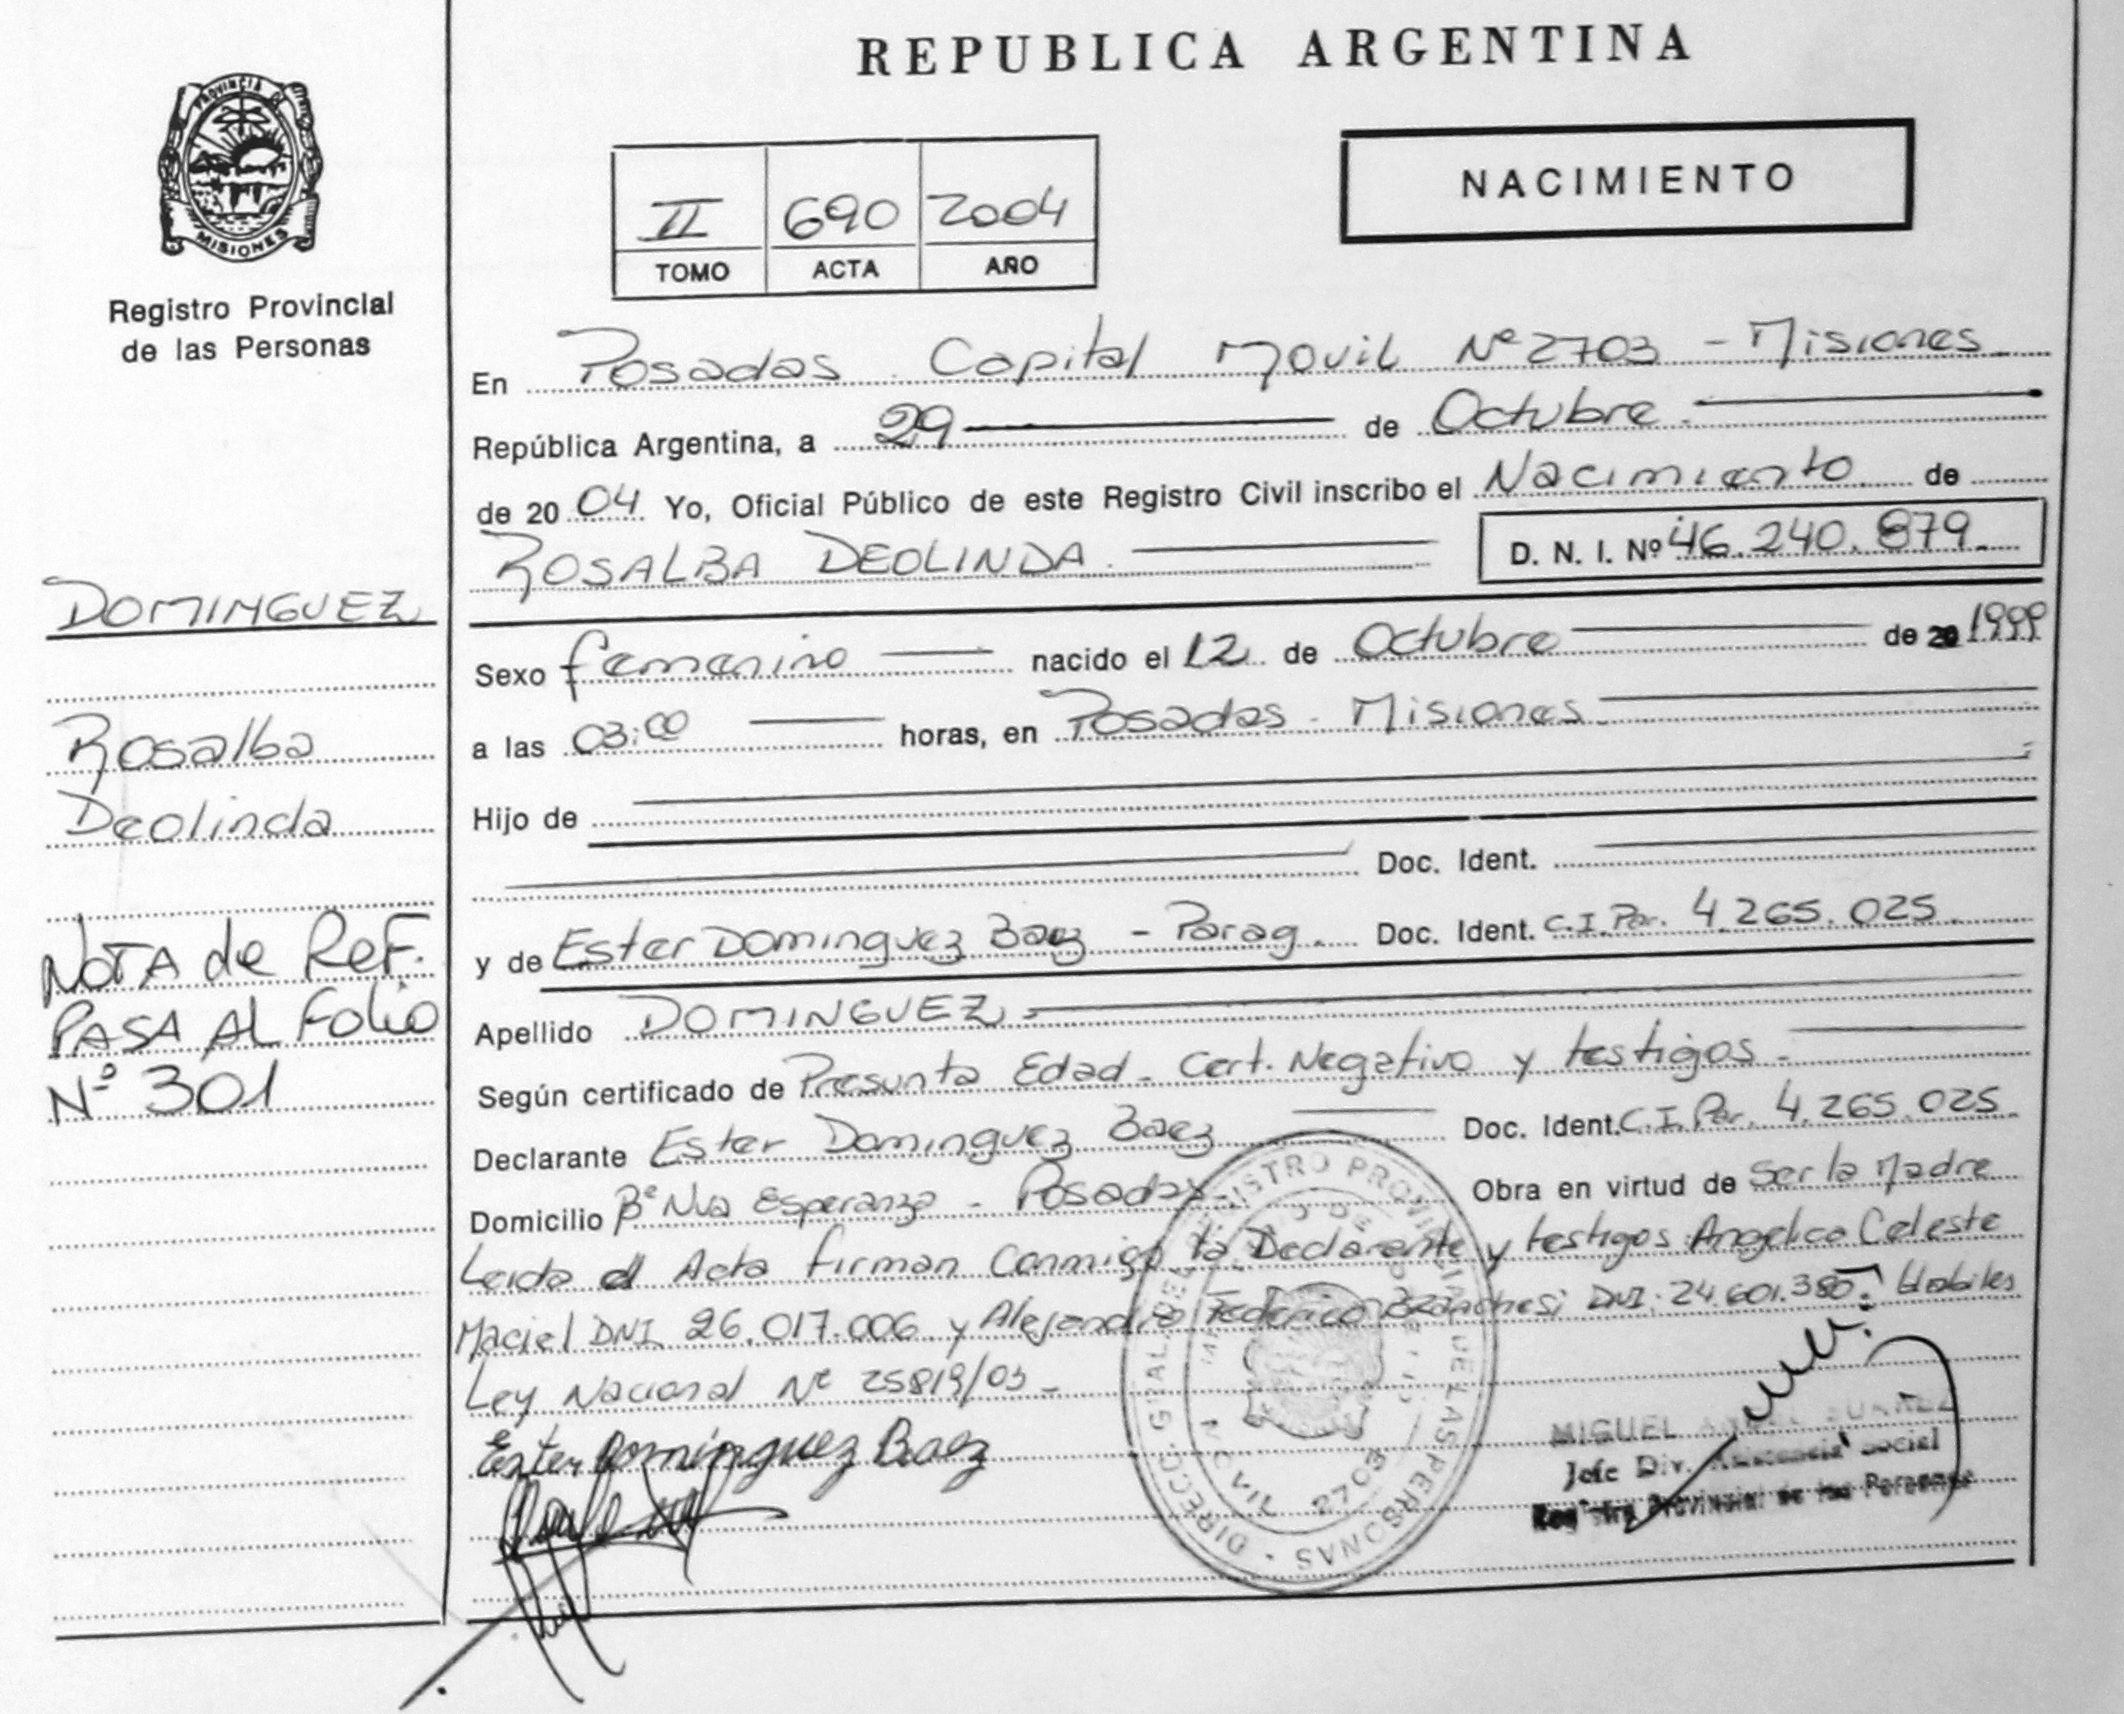 REPUBLICA ARGENTINA
PROVINCIA DE
MISIONES
Registro Provincial
de las Personas
NACIMIENTO
II 690 2004
TOMO ACTA AÑO
En Posadas Capital Movil Nº 2703 - Misiones
República Argentina, a 29 de Octubre
de 20 04 Yo, Oficial Público de este Registro Civil inscribo el Nacimiento de
ROSALBA DEOLINDA D. N. I. Nº 46.240.879
Sexo femenino nacido el 12 de Octubre de 20 1999
a las 03:00 horas, en Posadas - Misiones
Hijo de
Doc. Ident.
y de Ester Dominguez Baez - Parag. Doc. Ident. C.I. Par. 4.265.025
Apellido DOMINGUEZ
Según certificado de Presunta Edad - Cert. Negativo y testigos -
Declarante Ester Dominguez Baez Doc. Ident. C.I. Par. 4.265.025
Domicilio Bº Nva Esperanza - Posadas - Obra en virtud de Ser la Madre
Leida el Acta firman Conmigo la Declarante y testigos Angelica Celeste
Maciel DNI 26.017.006 y Alejandro Federico DNI: 24.601.380 Habiles
Ley Nacional Nº 25819/03 -
Ester Dominguez Baez
MIGUEL
Jefe Div. Social
Provincial de las Personas
DIRECC. GRAL. DEL REGISTRO PROVINCIAL DE LAS PERSONAS
MOVIL 2703
DOMINGUEZ
Rosalba
Deolinda
NOTA de ReF.
PASA AL Folio
Nº 301